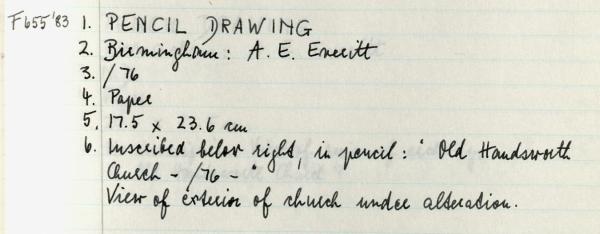 F655'83 1. PENCIL DRAWING
2. Birmingham: A. E. Everitt
3. /76
4. Paper
5. 17.5 x 23.6 cm
6. Inscribed below right, in pencil: ' Old Handsworth
Church - /76 - '
View of exterior of church under alteration.